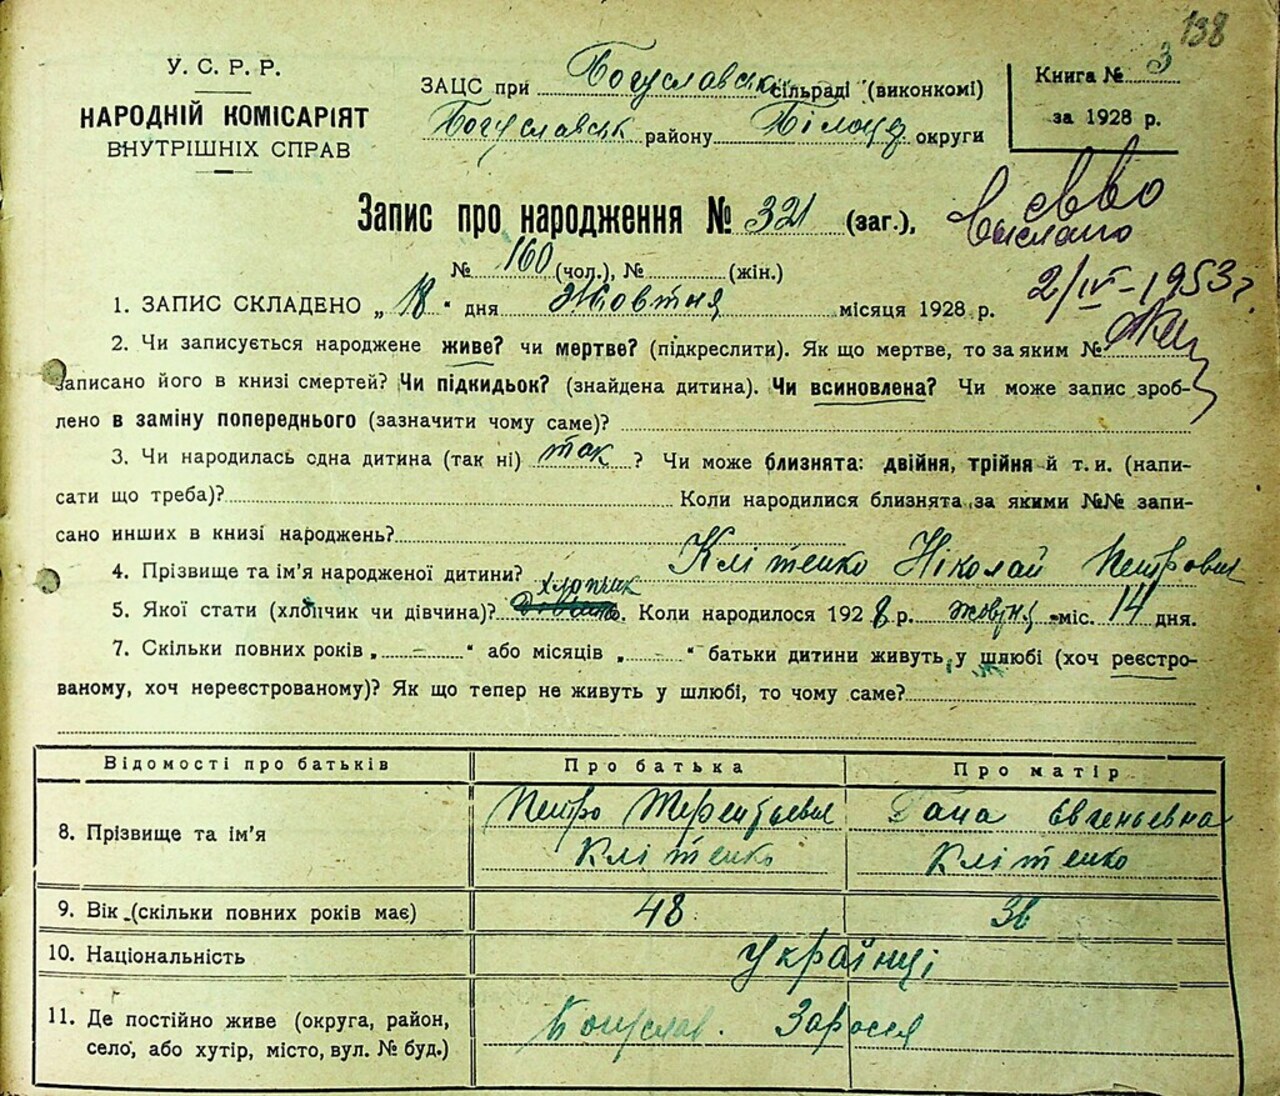 138
У. С. Р. Р.
НАРОДНІЙ КОМІСАРІЯТ
ВНУТРІШНІХ СПРАВ
ЗАЦС при Богуславськ сільраді (виконкомі)
Богуславськ району Білоцерк округи
Книга № 3
за 1928 р.
Запис про народження № 321 (заг.),
№ 160 (чол.), № (жін.)
Выслано
2/IV-1953 г.
1. ЗАПИС СКЛАДЕНО „ 18 " дня Жовтня місяця 1928 р.
2. Чи записується народжене живе? чи мертве? (підкреслити). Як що мертве, то за яким №
записано його в книзі смертей? Чи підкидьок? (знайдена дитина). Чи всиновлена? Чи може запис зроб-
лено в заміну попереднього (зазначити чому саме)?
3. Чи народилась одна дитина (так ні) так ? Чи може близнята: двійня, трійня й т. и. (напи-
сати що треба)? Коли народилися близнята за якими №№ запи-
сано инших в книзі народжень?
4. Прізвище та ім'я народженої дитини? Клітенко Ніколай Петрович
5. Якої стати (хлопчик чи дівчина)? хлопчик. Коли народилося 1928 р. жовтня міс. 14 дня.
7. Скільки повних років „ - " або місяців „ - " батьки дитини живуть у шлюбі (хоч реєстро-
ваному, хоч нереєстрованому)? Як що тепер не живуть у шлюбі, то чому саме?
Відомості про батьків Про батька Про матір
8. Прізвище та ім'я Петро Терентьевич Клітенко Гана Євгеньевна Клітенко
9. Вік (скільки повних років має) 48 36
10. Національність Українці
11. Де постійно живе (округа, район,
село, або хутір, місто, вул. № буд.) Богуслав. Заросся